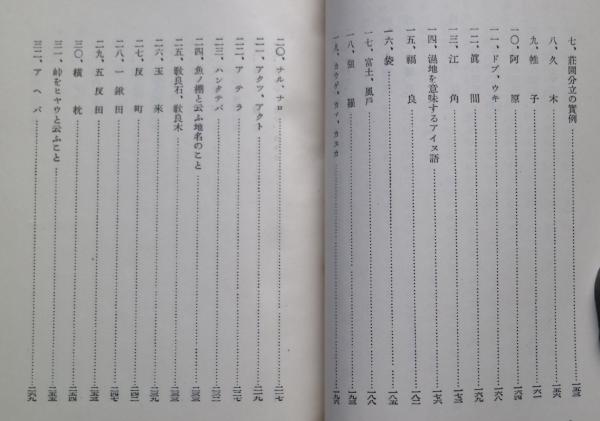 七、莊園分立の實例……一五三
八、久木……一五六
九、帷子……一六一
一〇、阿原……一六四
一一、ドブ、ウキ……一六六
一二、眞間……一六九
一三、江角……一七三
一四、濕地を意味するアイヌ語……一七六
一五、福良……一八二
一六、袋……一八五
一七、富士、風戸……一八八
一八、强羅……一九三
一九、カウゲ、カヌカ……一九六
二〇、ナル、ナロ……二一七
二一、アクツ、アクト……二一九
二二、アテラ……二二七
二三、ハンタテバ……二三二
二四、魚ノ棚と云ふ地名のこと……二三三
二五、敎良石、敎良木……二三五
二六、玉來……二三九
二七、反町……二四二
二八、一鍬田……二四七
二九、五反田……二五三
三〇、橫枕……二五四
三一、峠をヒヤウと云ふこと……二五五
三二、アヘバ……二六九